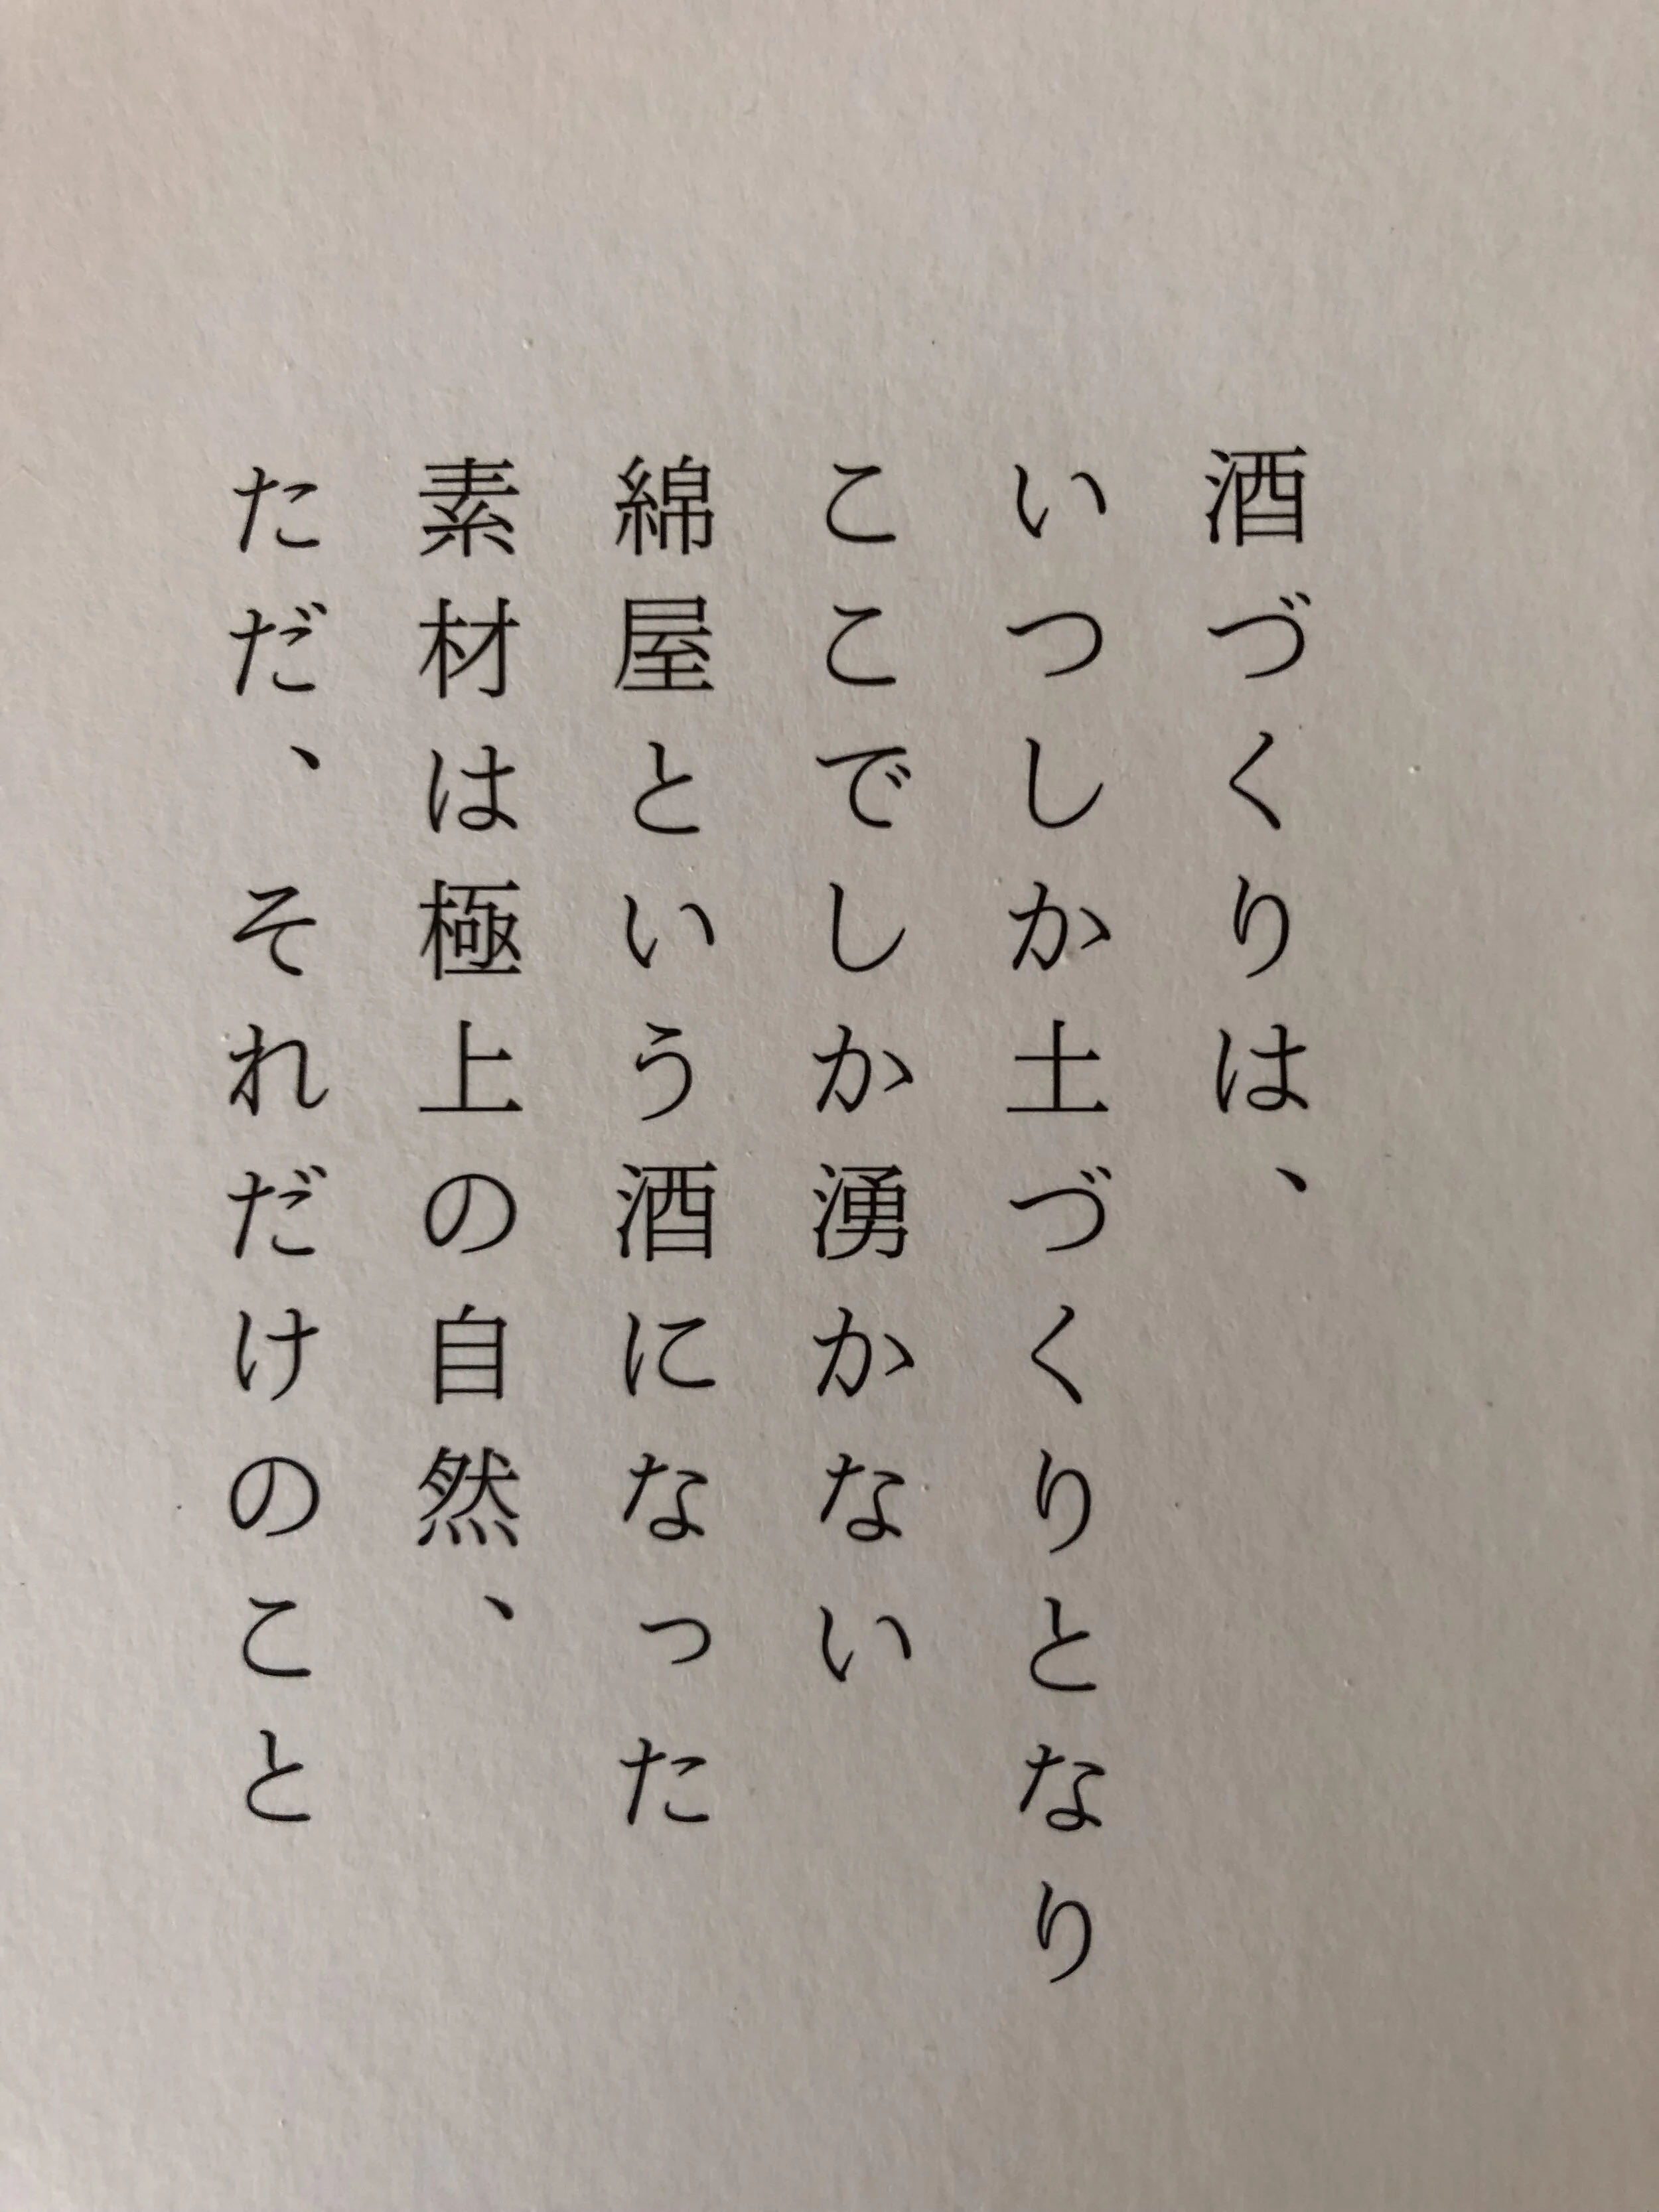 酒づくりは、
いつしか土づくりとなり
ここでしか湧かない
綿屋という酒になった
素材は極上の自然、
ただ、それだけのこと